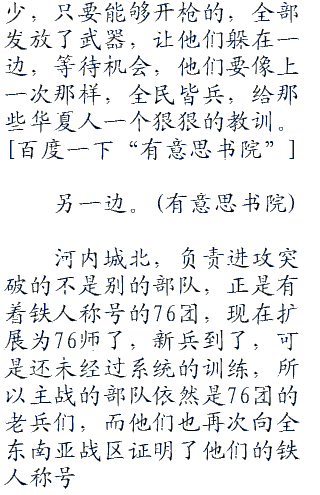 少，只要能够开枪的，全部
发放了武器，让他们躲在一
边，等待机会，他们要像上
一次那样，全民皆兵，给那
些华夏人一个狠狠的教训。
[百度一下“有意思书院”]
另一边。(有意思书院)
河内城北，负责进攻突
破的不是别的部队，正是有
着铁人称号的76团，现在扩
展为76师了，新兵到了，可
是还未经过系统的训练，所
以主战的部队依然是76团的
老兵们，而他们也再次向全
东南亚战区证明了他们的铁
人称号